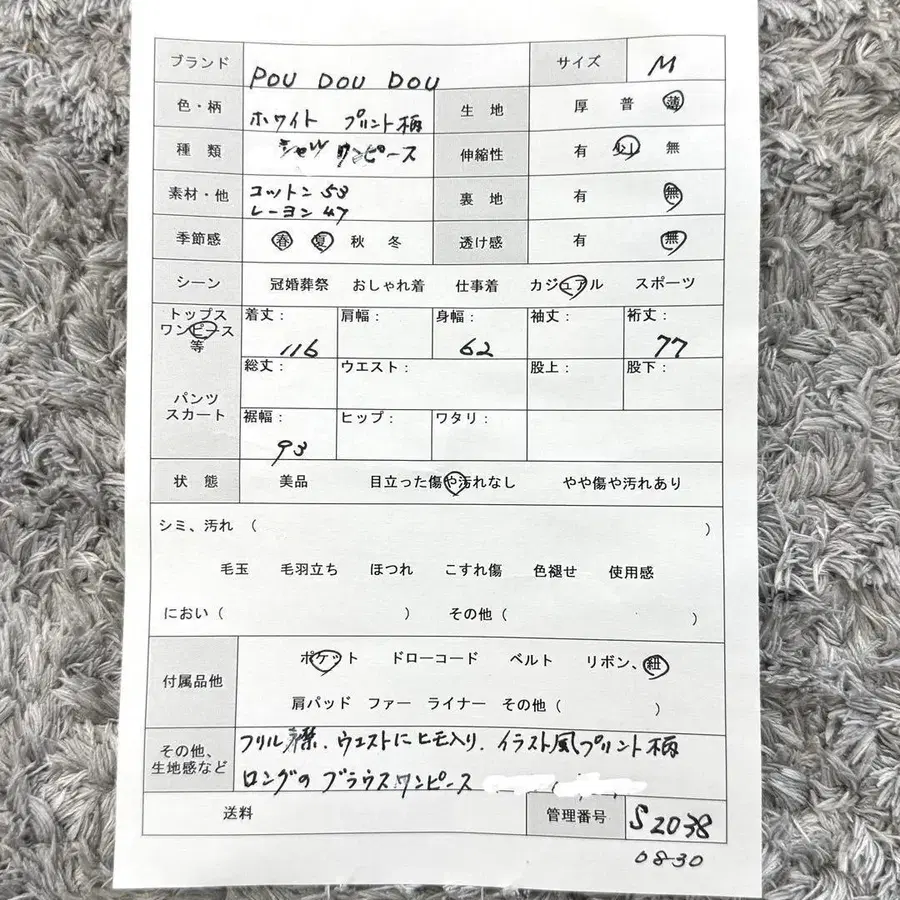 ブランド POU DOU DOU サイズ M
色・柄 ホワイト プリント柄 生地 厚 普 薄
種類 シャツワンピース 伸縮性 有 少し 無
素材・他 コットン 53
レーヨン 47
裏地 有 無
季節感 春 夏 秋 冬 透け感 有 無
シーン 冠婚葬祭 おしゃれ着 仕事着 カジュアル スポーツ
トップス
ワンピース
等
着丈: 116 肩幅: 身幅: 62 袖丈: 裄丈: 77
パンツ
スカート
総丈: ウエスト: 股上: 股下:
裾幅: 93 ヒップ: ワタリ:
状態 美品 目立った傷や汚れなし やや傷や汚れあり
シミ、汚れ ( )
毛玉 毛羽立ち ほつれ こすれ傷 色褪せ 使用感
におい ( ) その他 ( )
付属品他 ポケット ドローコード ベルト リボン、紐
肩パッド ファー ライナー その他 ( )
その他、
生地感など
フリル襟、ウエストにヒモ入り、イラスト風プリント柄
ロングのブラウスワンピース
送料 管理番号 S2038
0830